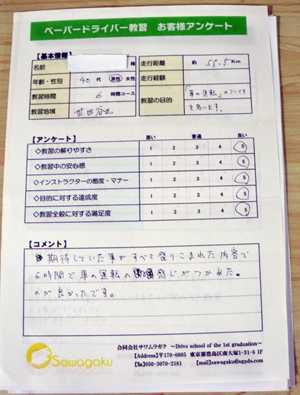 ペーパードライバー教習 お客様アンケート
【基本情報】
名前 様 走行距離 約 55.5 Km
年齢・性別 40代 男性 女性 走行経験
教習時間 6 時間コース 教習の目的 「車の運転」の
教習地域 世田谷区
【アンケート】 悪い 普通 良い
◇教習の解りやすさ 1 2 3 4 5
◇教習中の安心感 1 2 3 4 5
◇インストラクターの態度・マナー 1 2 3 4 5
◇目的に対する達成度 1 2 3 4 5
◇教習全般に対する満足度 1 2 3 4 5
【コメント】
期待していた事がすべて盛りこまれた内容で
6時間で車の運転の感じがつかめた。
のが良かったです。
Sawagaku
合同会社サワムラガク ~Drive school of the 1st graduation~
【Address】〒170-0005 東京都豊島区南大塚1-31-6 1F
【Tel】050-3070-2181 【Mail】sawagaku@ezpds.com